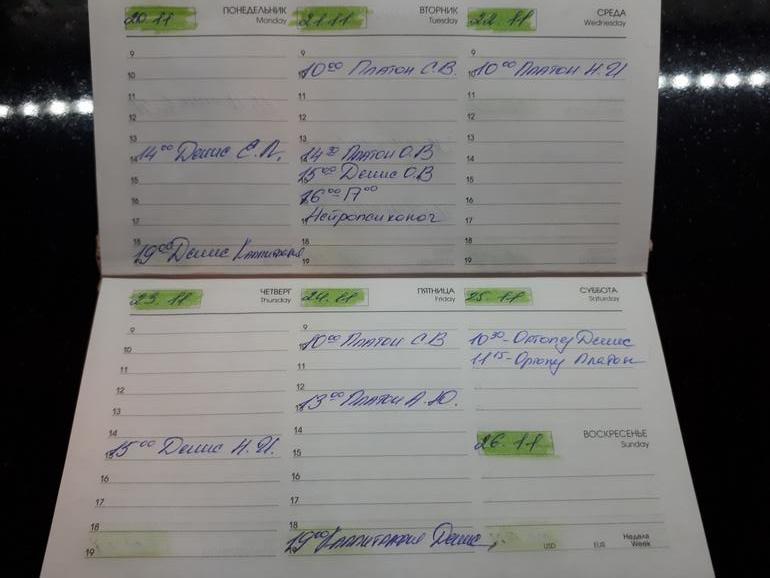 20.11 ПОНЕДЕЛЬНИК Monday
9
10
11
12
13
14⁰⁰ Денис Е.Л.
15
16
17
18
19⁰⁰ Денис Каллиграфия
21.11 ВТОРНИК Tuesday
9
10⁰⁰ Платон С.В.
11
12
13
14³⁰ Платон О.В
15⁰⁰ Денис О.В
16⁰⁰-17⁰⁰
Нейропсихолог
18
19
22.11 СРЕДА Wednesday
9
10⁰⁰ Платон Н.И
11
12
13
14
15
16
17
18
19
23.11 ЧЕТВЕРГ Thursday
9
10
11
12
13
14
15⁰⁰ Денис Н.И.
16
17
18
19
24.11 ПЯТНИЦА Friday
9
10⁰⁰ Платон С.В
11
12
13⁰⁰ Платон А.Ю.
14
15
16
17
18
19⁰⁰ Каллиграфия Денис
25.11 СУББОТА Saturday
10³⁰-Ортопед Денис
11¹⁵-Ортопед Платон
26.11 ВОСКРЕСЕНЬЕ Sunday
USD EUR Неделя Week